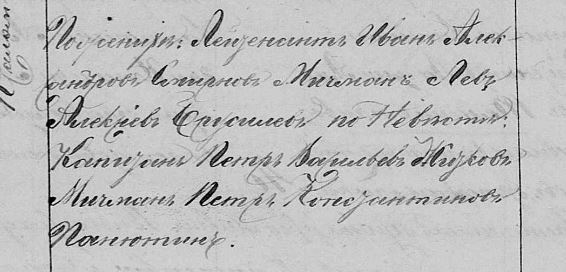 По женихѣ: Лейтенантъ Иванъ Алек-
андровъ Смирновъ Мичманъ Левъ
Алексѣевъ Брусиловъ по Невѣстѣ:
Капитанъ Петръ Васильевъ Жидковъ
Мичманъ Петръ Константиновъ
Панютинъ.